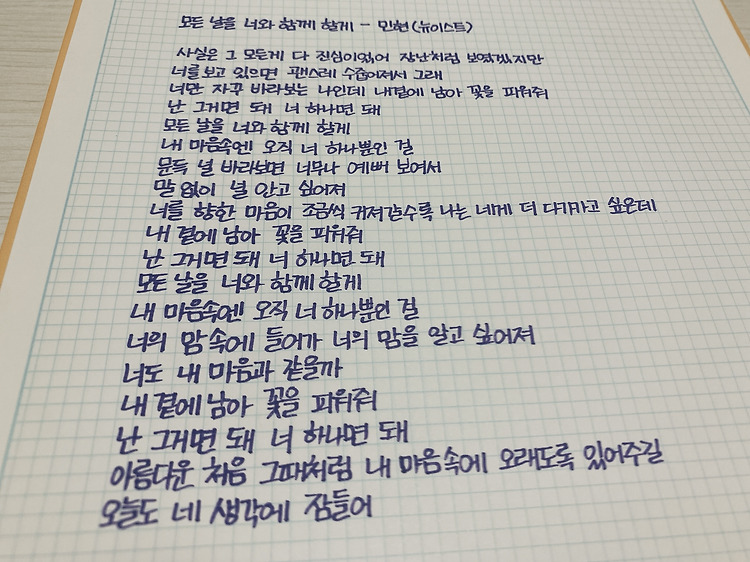 모든 날을 너와 함께 할게 - 민현(뉴이스트)
사실은 그 모든게 다 진심이었어 장난처럼 보였겠지만
너를 보고 있으면 괜스레 수줍어져서 그래
너만 자꾸 바라보는 나인데 내곁에 남아 꽃을 피워줘
난 그거면 돼 너 하나면 돼
모든 날을 너와 함께 할게
내 마음속엔 오직 너 하나뿐인 걸
문득 널 바라보면 너무나 예뻐 보여서
말 없이 널 안고 싶어져
너를 향한 마음이 조금씩 커져갈수록 나는 네게 더 다가가고 싶은데
내 곁에 남아 꽃을 피워줘
난 그거면 돼 너 하나면 돼
모든 날을 너와 함께 할게
내 마음속엔 오직 너 하나뿐인 걸
너의 맘 속에 들어가 너의 맘을 알고 싶어져
너도 내 마음과 같을까
내 곁에 남아 꽃을 피워줘
난 그거면 돼 너 하나면 돼
아름다운 처음 그때처럼 내 마음속에 오래도록 있어주길
오늘도 네 생각에 잠들어